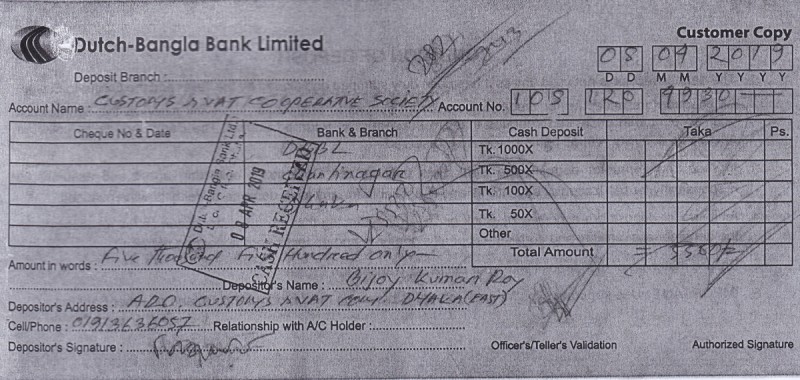 Dutch-Bangla Bank Limited
Customer Copy
08 04 2019
D D M M Y Y Y Y
Deposit Branch :
Account Name : CUSTOMS & VAT COOPERATIVE SOCIETY Account No. 105 120 9930
Cheque No & Date Bank & Branch Cash Deposit Taka Ps.
DBBL Tk. 1000X
Shantinagar Tk. 500X
Dhaka Tk. 100X
Tk. 50X
Other
Total Amount
Dutch-Bangla Bank Ltd.
08 APR 2019
CASH RECEIVED
Amount in words : Five Thousand Five Hundred only
Depositor's Name : Bijoy Kumar Roy
Depositor's Address : ARO, CUSTOMS & VAT DHAKA (EAST)
Cell/Phone : 01913636057 Relationship with A/C Holder :
Depositor's Signature : Officer's/Teller's Validation Authorized Signature